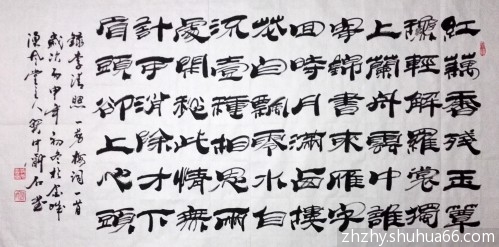 紅藕香殘玉簟
秋輕解羅裳獨
上蘭舟雲中誰
寄錦書來雁字
回時月滿西樓
花自飄零水自
流壹種相思兩
處閒愁此情無
計可消除才下
眉頭卻上心頭
錄李清照一剪梅詞一首
歲次丙申年初冬於
漢風堂主人
zhzhy.shuhua66.com